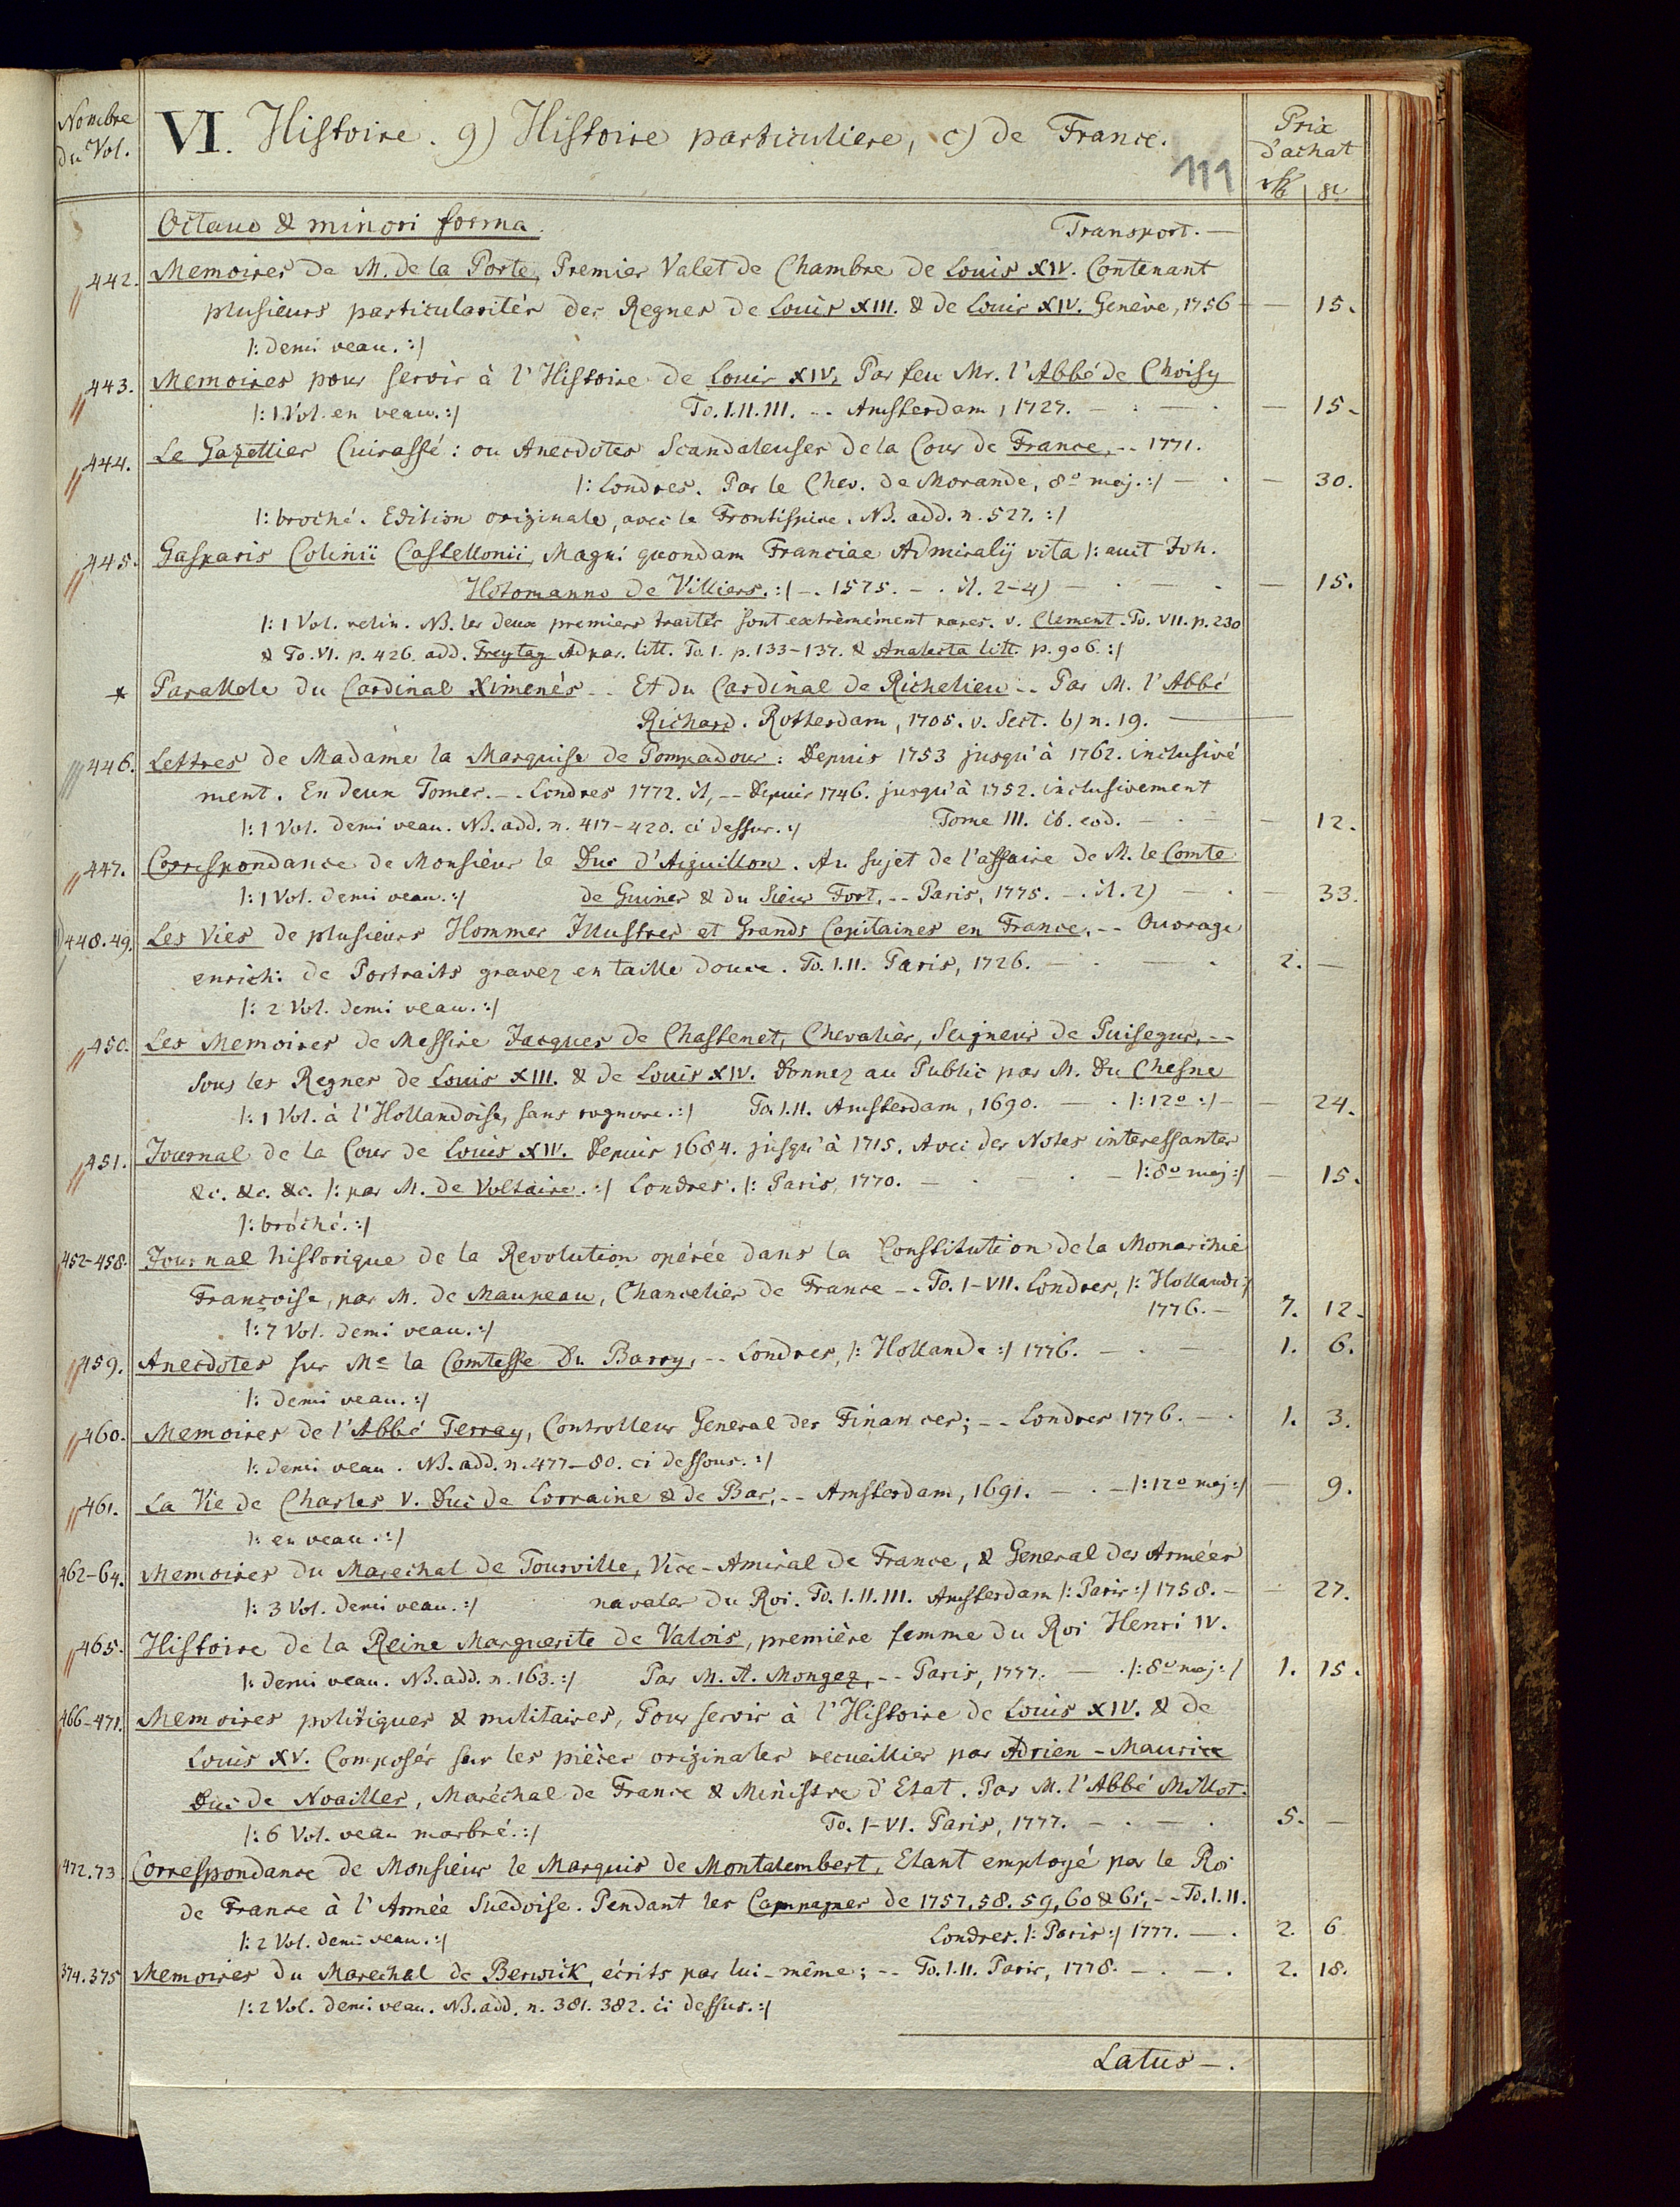 Nombre du Vol.
VI. Histoire. g) Histoire particuliere, c) de France.
Prix d'achat
111
Octavo & minori forma. Transport. —
442. Memoires de M. de la Porte, Premier Valet de Chambre de Louis XIV. Contenant
plusieurs particularités des Regnes de Louis XIII. & de Louis XIV. Genève, 1756 — — 15.
/: demi veau. :/
443. Memoires pour servir à l'Histoire de Louis XIV. Par feu Mr. l'Abbé de Choisy
/: 1 Vol. en veau. :/ To. I. II. III. -- Amsterdam, 1727. — . — . — 15.
444. Le Gazettier Cuirassé: ou Anecdotes Scandaleuses de la Cour de France, -- 1771.
/: Londres. Par le Chev. de Morande, 8o maj. :/ — . — 30.
/: broché. Edition originale, avec le Frontispice. NB. add. n. 527. :/
445. Gasparis Colinii Castellonii, Magni quondam Franciae Admiralij vita /: auct Joh.
Hotomanno de Villiers. :/ -. 1575. -. it. 2-4) — . — . — 15.
/: 1 Vol. velin. NB. les deux premiers traités sont extrèmément rares. v. Clement. To. VII. p. 230
& To. VI. p. 426. add. Freytag Adpar. litt. To. I. p. 133-137. & Analecta litt. p. 906. :/
* Parallele du Cardinal Ximenés -- Et du Cardinal de Richelieu -- Par M. l'Abbé
Richard. Rotterdam, 1705. v. Sect. b) n. 19. —
446. Lettres de Madame la Marquise de Pompadour: Depuis 1753 jusqu'à 1762. inclusivé
ment. En deux Tomes. -- Londres 1772. it, -- Depuis 1746. jusqu'à 1752. inclusivement
/: 1 Vol. demi veau. NB. add. n. 417-420. ci dessus. :/ Tome III. ib. eod. — . — — 12.
447. Correspondance de Monsieur le Duc d'Aiguillon. Au sujet de l'affaire de M. le Comte
/: 1 Vol. demi veau. :/ de Guines & du Sieur Fort, -- Paris, 1775. -. it. 2) — . — 33.
448.49. Les Vies de plusieurs Hommes Illustres et Grands Capitaines en France, -- Ouvrage
enrichi de Portraits gravez en taille douce. To. I. II. Paris, 1726. — . — . 2. —
/: 2 Vol. demi veau. :/
450. Les Memoires de Messire Jacques de Chastenet, Chevalier, Seigneur de Puisegur, --
sous les Regnes de Louis XIII. & de Louis XIV. Donnez au Public par M. Du Chesne
/: 1 Vol. à l'Hollandoise, sans rognure. :/ To. I. II. Amsterdam, 1690. — . /: 12o :/ — — 24.
451. Journal de la Cour de Louis XIV. Depuis 1684. jusqu'à 1715. Avec des Notes interessantes
&c. &c. &c. /: par M. de Voltaire. :/ Londres. /: Paris, 1770. — . — . — /: 8o maj :/ — 15.
/: broché. :/
452-458. Journal historique de la Revolution opérée dans la Constitution de la Monarchie
Françoise, par M. de Maupeau, Chancelier de France -- To. I-VII. Londres, /: Hollande :/
1776. — 7. 12.
/: 7 Vol. demi veau. :/
459. Anecdotes sur Me la Comtesse Du Barry, -- Londres, /: Hollande :/ 1776. — . — 1. 6.
/: demi veau. :/
460. Memoires de l'Abbé Terray, Controlleur General des Finances; -- Londres 1776. — . 1. 3.
/: demi veau. NB. add. n. 477-80. ci dessous. :/
461. La Vie de Charles V. Duc de Lorraine & de Bar, -- Amsterdam, 1691. — . — /: 12o maj :/ — 9.
/: en veau. :/
462-64. Memoires du Marechal de Tourville, Vice-Amiral de France, & General des Armées
/: 3 Vol. demi veau. :/ navales du Roi. To. I. II. III. Amsterdam /: Paris :/ 1758. — — 27.
465. Histoire de la Reine Marguerite de Valois, première femme du Roi Henri IV.
/: demi veau. NB. add. n. 163. :/ Par M. A. Mongez, -- Paris, 1777. — . /: 8o maj :/ 1. 15.
466-471. Memoires politiques & militaires, Pour servir à l'Histoire de Louis XIV. & de
Louis XV. Composés sur les pièces originales recueillies par Adrien-Maurice
Duc de Noailles, Maréchal de France & Ministre d'Etat. Par M. l'Abbé Millot.
/: 6 Vol. veau marbré. :/ To. I-VI. Paris, 1777. — . — . 5. —
472.73. Correspondance de Monsieur le Marquis de Montalembert, Etant employé par le Roi
de France à l'Armée Suedoise. Pendant les Campagnes de 1757, 58. 59, 60 & 61, -- To. I. II.
/: 2 Vol. demi veau. :/ Londres. /: Paris :/ 1777. — . 2. 6
374.375 Memoires du Marechal de Berwick, écrits par lui-même; -- To. I. II. Paris, 1778. — . — . 2. 18.
/: 2 Vol. demi veau. NB. add. n. 381. 382. ci dessus. :/
Latus —.